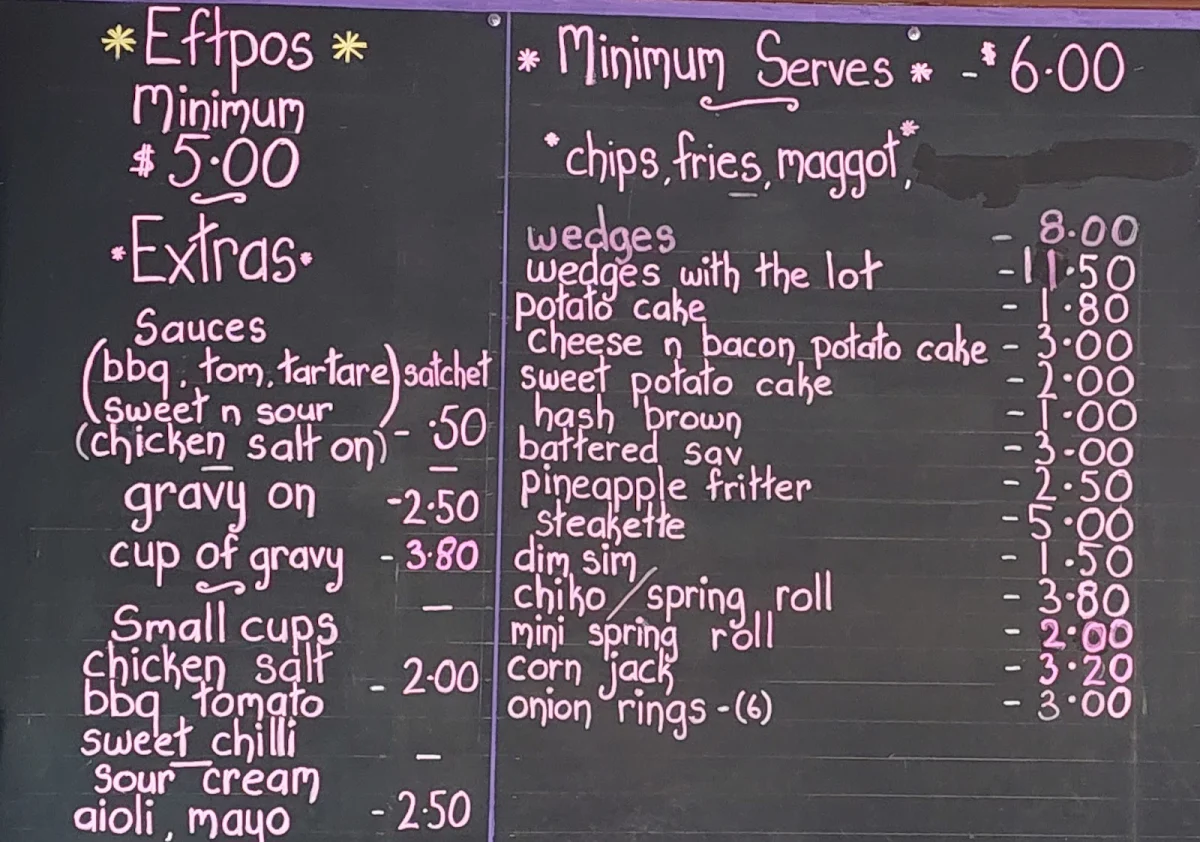 * Eftpos *
Minimum
$ 5.00
*Extras*
Sauces
(bbq, tom, tartare) satchet
sweet n sour
(chicken salt on) - .50
gravy on -2.50
cup of gravy - 3.80
Small cups
chicken salt
bbq tomato - 2.00
sweet chilli
sour cream
aioli, mayo - 2.50
* Minimum Serves * - $6.00
*chips, fries, maggot,*
wedges - 8.00
wedges with the lot - 11.50
potato cake - 1.80
cheese n bacon potato cake - 3.00
sweet potato cake - 2.00
hash brown - 1.00
battered sav - 3.00
pineapple fritter - 2.50
steakette - 5.00
dim sim - 1.50
chiko/spring roll - 3.80
mini spring roll - 2.00
corn jack - 3.20
onion rings - (6) - 3.00